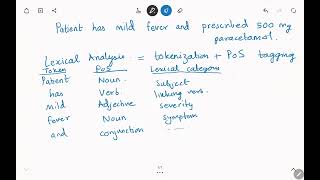 Patient has mild fever and prescribed 500 mg
paracetamol.
Lexical Analysis = tokenization + PoS tagging
Token PoS Lexical category
Patient Noun Subject
has Verb linking verb.
mild Adjective severity
fever Noun Symptom
and conjunction